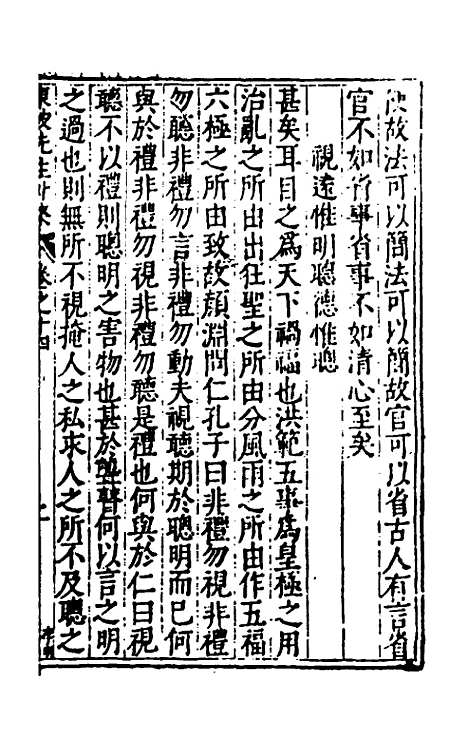 使故法可以簡法可以簡故官可以省古人有言省
官不如省事省事不如清心至矣
視遠惟明聽德惟聰
甚矣耳目之為天下禍福也洪範五事為皇極之用
治亂之所由出狂聖之所由分風雨之所由作五福
六極之所由致故顏淵問仁孔子曰非禮勿視非禮
勿聽非禮勿言非禮勿動夫視聽期於聰明而已何
與於禮非禮勿視非禮勿聽是禮也何與於仁曰視
聽不以禮則聰明之害物也甚於聾瞽何以言之明
之過也則無所不視掩人之私求人之所不及聽之
東坡先生外集 卷之十四